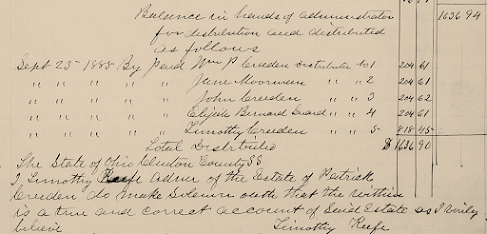 Balance in hands of administrator 1636 94
for distribution and distributed
as follows
Sept 25 - 1885 By paid Wm P Creeden distributee No 1 204 61
" " " " June Moorween " " 2 204 61
" " " " John Creeden " " 3 204 62
" " " " Elijah Bernard Guard " " 4 204 61
" " " " Timothy Creeden " " 5 - 818 45
Total Distributed $1636 90
The State of Ohio Clinton County SS
I Timothy Keefe Admr of the Estate of Patrick
Creeden do make Solemn oath that the within
is a true and correct account of Said Estate as I verily
believe Timothy Keefe